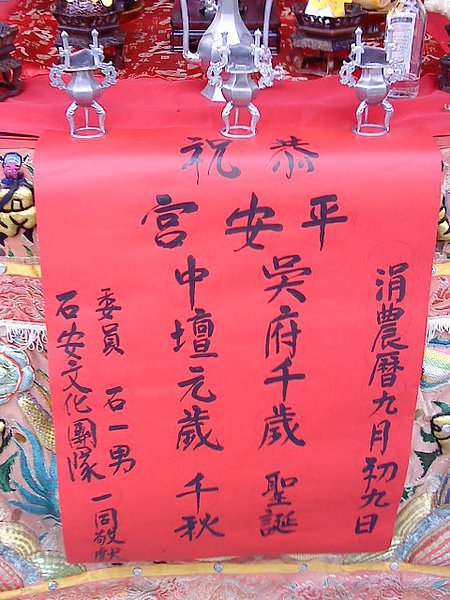 恭祝
平安宮
涓農曆九月初九日
吳府千歲 聖誕
中壇元歲 千秋
委員 石一男
石安文化團隊 一同敬獻